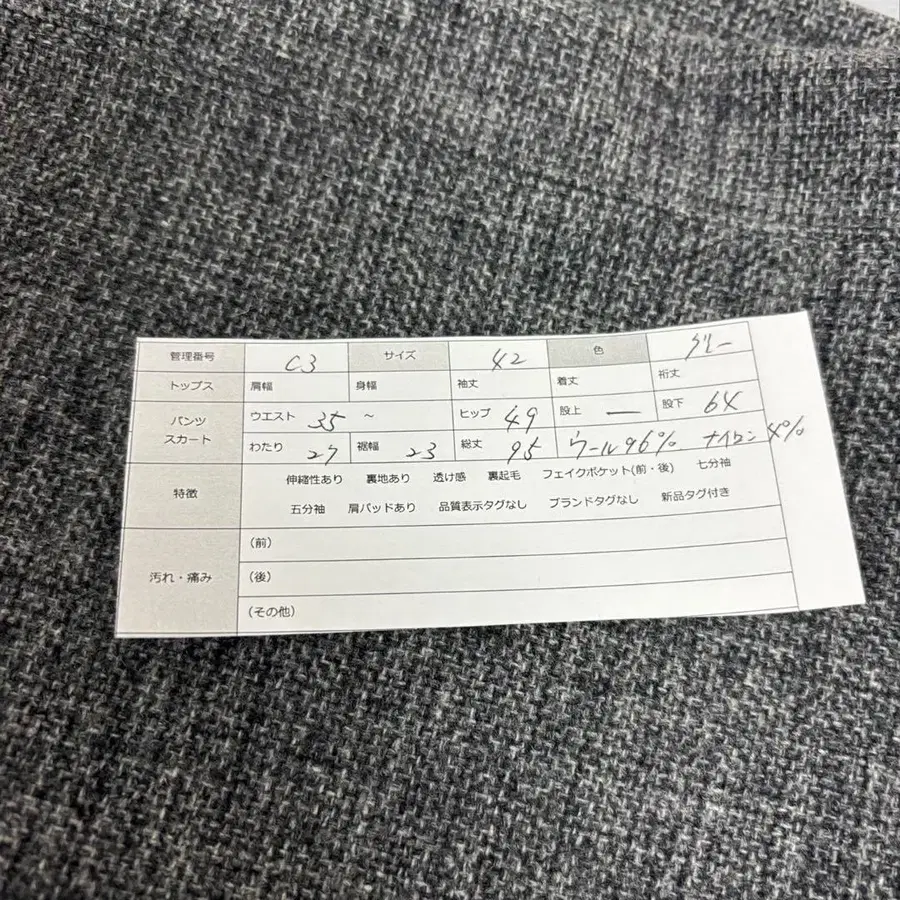 管理番号 C3 サイズ 42 色 グレー
トップス 肩幅 身幅 袖丈 着丈 裄丈
パンツ スカート ウエスト 35 ～ ヒップ 49 股上 ー 股下 64
わたり 27 裾幅 23 総丈 95 ウール96% ナイロン4%
特徴 伸縮性あり 裏地あり 透け感 裏起毛 フェイクポケット(前・後) 七分袖
五分袖 肩パッドあり 品質表示タグなし ブランドタグなし 新品タグ付き
汚れ・痛み (前)
(後)
(その他)